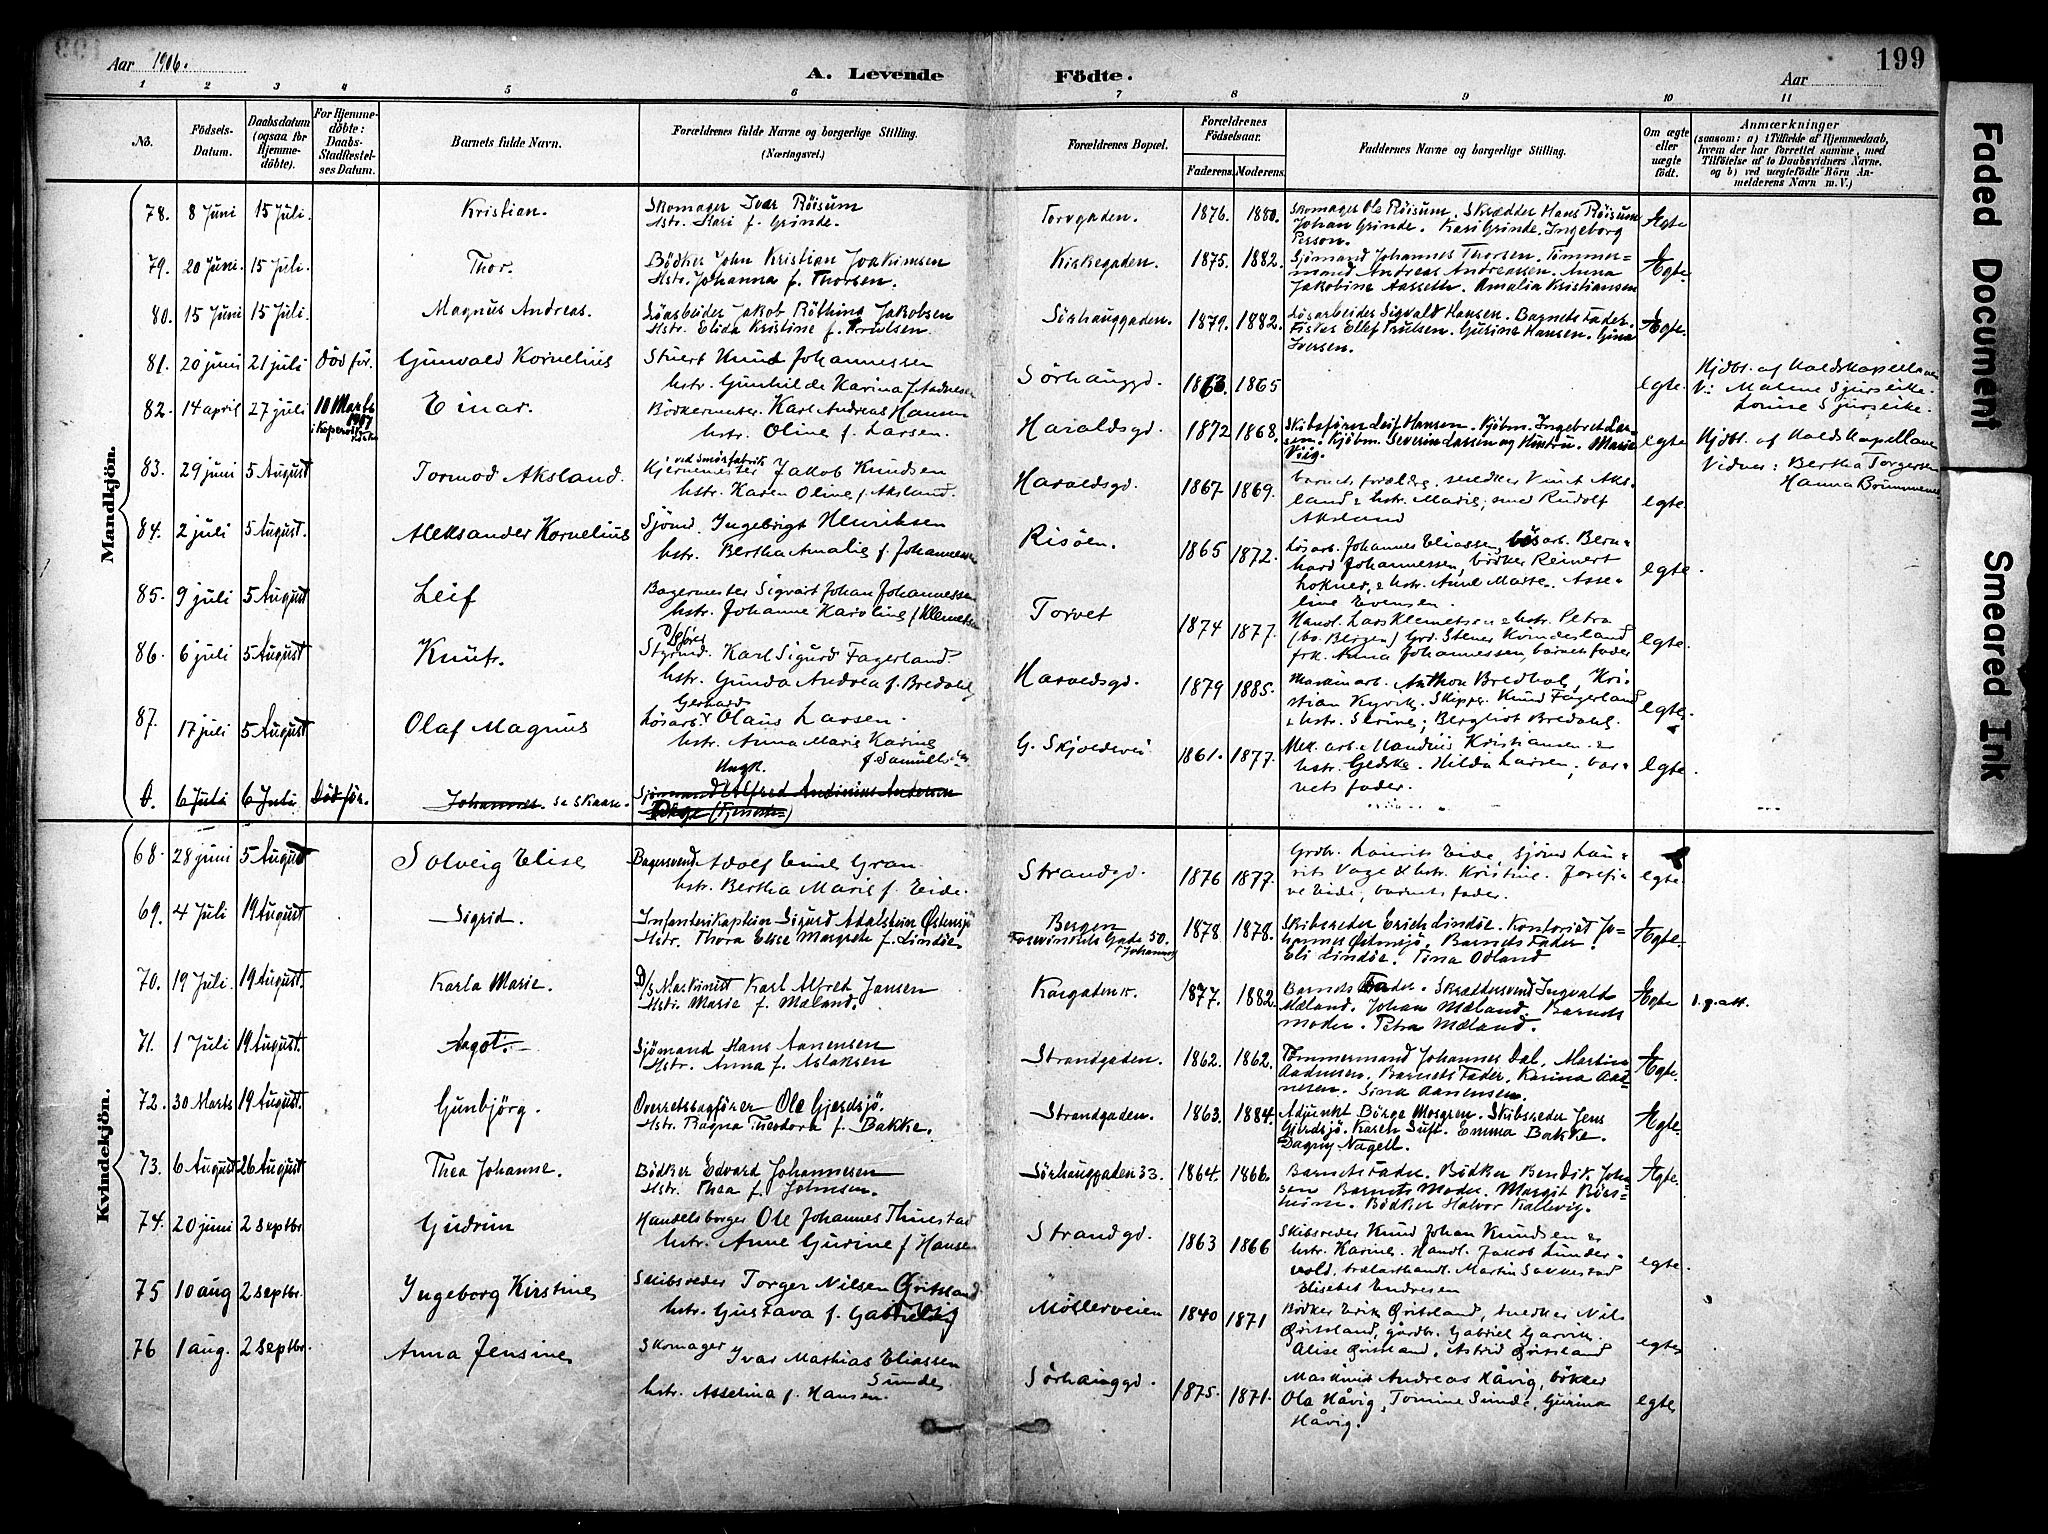 Aar 1906.
A. Levende Födte.
Aar
199
1 2 3 4 5 6 7 8 9 10 11
No.
Födsels-Datum.
Daabsdatum (ogsaa for Hjemmedöbte).
For Hjemmedöbte: Daabs-Stadfæstelses Datum.
Barnets fulde Navn.
Forældrenes fulde Navne og borgerlige Stilling.
(Næringsvei.)
Forældrenes Bopæl.
Forældrenes Födselsaar.
Faderens. Moderens.
Faddernes Navne og borgerlige Stilling.
Om ægte eller uægte födt.
Anmærkninger
(saasom: a) i Tilfælde af Hjemmedaab, hvem der har forrettet samme, med Tilföielse af to Daabsvidners Navne. og b) ved uægtefödte Börn Anmelderens Navn m. V.)
Mandkjön.
78. 8 Juni 15 Juli. Kristian. Skomager Ivar Röisum
Hstr. Kari f. Grinde. Torvgaden. 1876. 1880. Skomager Ole Röisum. Skrædder Hans Röisum
Johan Grinde. Kari Grinde. Ingeborg
Person. Ægte
79. 20 Juni. 15 Juli. Thor. Bödker John Kristian Joakimsen
Hstr. Johanna f. Thorsen. Kirkegaden. 1875. 1882. Sjömand Johannes Thorsen. Timmer=
mand Andreas Andreassen. Anna
Jakobine Aasseth. Amalia Kristiansen Ægte.
80. 15 Juni 15 Juli. Magnus Andreas. Lösarbeider Jakob Röthing Jakobsen
Hstr. Elida Kristine f. Trulsen. Sörhauggaden. 1879. 1882. Lösarbeider Sigvald Hansen. Barnets Fader.
Fisker Ellef Trulsen. Gurine Hansen. Gina
Iversen. Ægte.
81. 20 juni 21 juli Död för. Gunvald Kornelius Stuert Knud Johannessen
hstr. Gunhilde Karina f. Aadnesen Sörhauggd. 1863. 1865 egte. Hjdbt. af
V: Malene Sjurseike.
Louise Sjurseike.
82. 14 april 27 juli 10 Marts 1907 i Kopervik Einar. Bödkermester Karl Andreas Hansen
hstr. Oline f. Larsen. Haraldsgd. 1872 1868. Skibsförer Leif Hansen. Kjöbm. Ingebret Lar-
sen. Kjöbm. Severin Larsen og Hustru. Marie
Viig. egte Hjdbt. af
Vidner: Bertha Torgersen
Hanna
83. 29 juni 5 August Tormod Aksland. Kjernemester ved Smörfabrik Jakob Knudsen
hstr. Karen Oline f. Aksland. Haraldsgd. 1867 1869. barnets forældre, snedker Vinct Aks-
land & hstr. Marie, smed Rudolf
Aksland egte.
84. 2 juli 5 August. Aleksander Kornelius Sjömd. Ingebrigt Henriksen
hstr. Bertha Amalie f. Johannessen Risöen. 1865 1872. Lösarb. Johannes Eliassen, lösarb. Bern-
hard Johannessen, bödker Reinert
Lokner, & hstr. Anne Marte. Asse-
line Evensen. egte.
85. 9 juli 5 August Leif Bagermester Sigvart Johan Johannessen
hstr. Johanne Karoline f. Klemetsen Torvet 1874 1877. Handl. Lars Klemetsen & hstr. Petra
(bo. Bergen) Grd. Stener Kvinderland
frk. Anna Johannessen, barnets fader egte.
86. 6 juli 5 August Knut. Styrmd. D/s förer Karl Sigurd Fagerland.
hstr. Gunda Andrea f. Bredahl Haraldsgd. 1879 1885. Maskinarb. Anthon Bredhal, Kri-
stian Kyvik. Skipper Knud Fagerland
& hstr. Serine; Bergliot Bredahl. egte.
87. 17 juli 5 August Olaf Magnus Lösarb. Gerhard Olaus Larsen.
hstr. Anna Marie Karine
f. Samuels G. Skjoldsvei 1861. 1877. Mek. arb. Mandius Kristiansen. &
hstr. Gedske. Hilda Larsen, bar-
nets fader. egte.
D. 6 Juli 6 Juli Död för. Johannes. se Skaare. Ungk.
Sjömand Alfred Andinius Andersen
Kvindekjön.
68. 28 juni 5 August Solveig Elise Bagersvend Adolf Emil Gran
hstr. Bertha Marie f. Eide. Strandgd. 1876 1877. Grdbr. Laurits Eide, sjömd Lau-
rits Vage & hstr. Kristine. Josefi-
ne Eide, barnets fader. egte.
69. 4 Juli 19 August Sigrid. Infanterikaptein Sigurd Adalstein Östensjö
Hstr. Thora Else Margrete f. Lindöe Bergen
Gade 50. 1878 1878. Skibsreder Erich Lindöe. Kontorist Jo-
hannes Östensjö, Barnets Fader.
Eli Lindöe. Tina Odland Ægte.
70. 19 Juli. 19 August. Karla Marie. D/s Maskinist Karl Alfred Jansen
Hstr. Marie f. Mæland. Kaigaden 15. 1877. 1882. Barnets Fader. Skræddersvend Ingvald
Mæland. Johan Mæland. Barnets
moder. Petra Mæland. Ægte
71. 1 Juli 19 August. Aagot. Sjömand Hans Aanensen
Hstr. Anna f. Aslaksen Strandgaden. 1862. 1862. Tömmermand Johannes Dal. Martin
Aadnesen. Barnets Fader. Karina Aad=
nesen. Sina Aanensen. Ægte.
72. 30 Marts 19 August. Gunbjörg. Overretssagförer Ole Gjerdsjö.
Hstr. Ragna Theodora f. Bakke. Strandgaden. 1863. 1884. Adjunkt Börge Mosgren. Skibsreder Jens
Gjerdsjö. Karen Juft. Emma Bakke.
Dagny Nagell. Ægte.
73. 6 August 26 August Thea Johanne. Bödker Edvard Johannesen
Hstr. Thea f. Johnsen. Sörhauggaden 33. 1864. 1866. Barnets Fader. Bödker Bendik Johan-
sen Barnets Moder. Margit
Bödker Halvor Kallevig. Ægte.
74. 20 juni 2 septbr Gudrun Handelsborger Ole Johannes Thuestad
hstr. Anne Gurine f. Hansen Strandgd. 1863 1866 Skibsreder Knud Johan Knudsen &
hstr. Karine. Handl. Jakob Lunder-
vold, trælasthandl. Martin Sakkestad
Elisabet Endresen egte.
75 10 aug 2 septbr. Ingeborg Kirstine Skibsreder Torger Nilsen Qvitsland
hstr. Gustava f. Möllerveien 1840 1871 Bödker Erik Qvitsland, snedker Nils
Qvitsland, gårdbr. Gabriel Garvik.
Alise Qvitsland, Astrid Qvitsland egte
76 1 aug. 2 septbr. Anna Jensine Skomager Ivar Mathias Eliassen
Sunde
hstr. Asselina f. Hansen. Sörhauggd. 1875. 1871. Maskinist Andreas Håvig, bödker
Ola Håvig, Tomine Sunde, Gurina
Håvig. egte
Faded Document
Smeared Ink